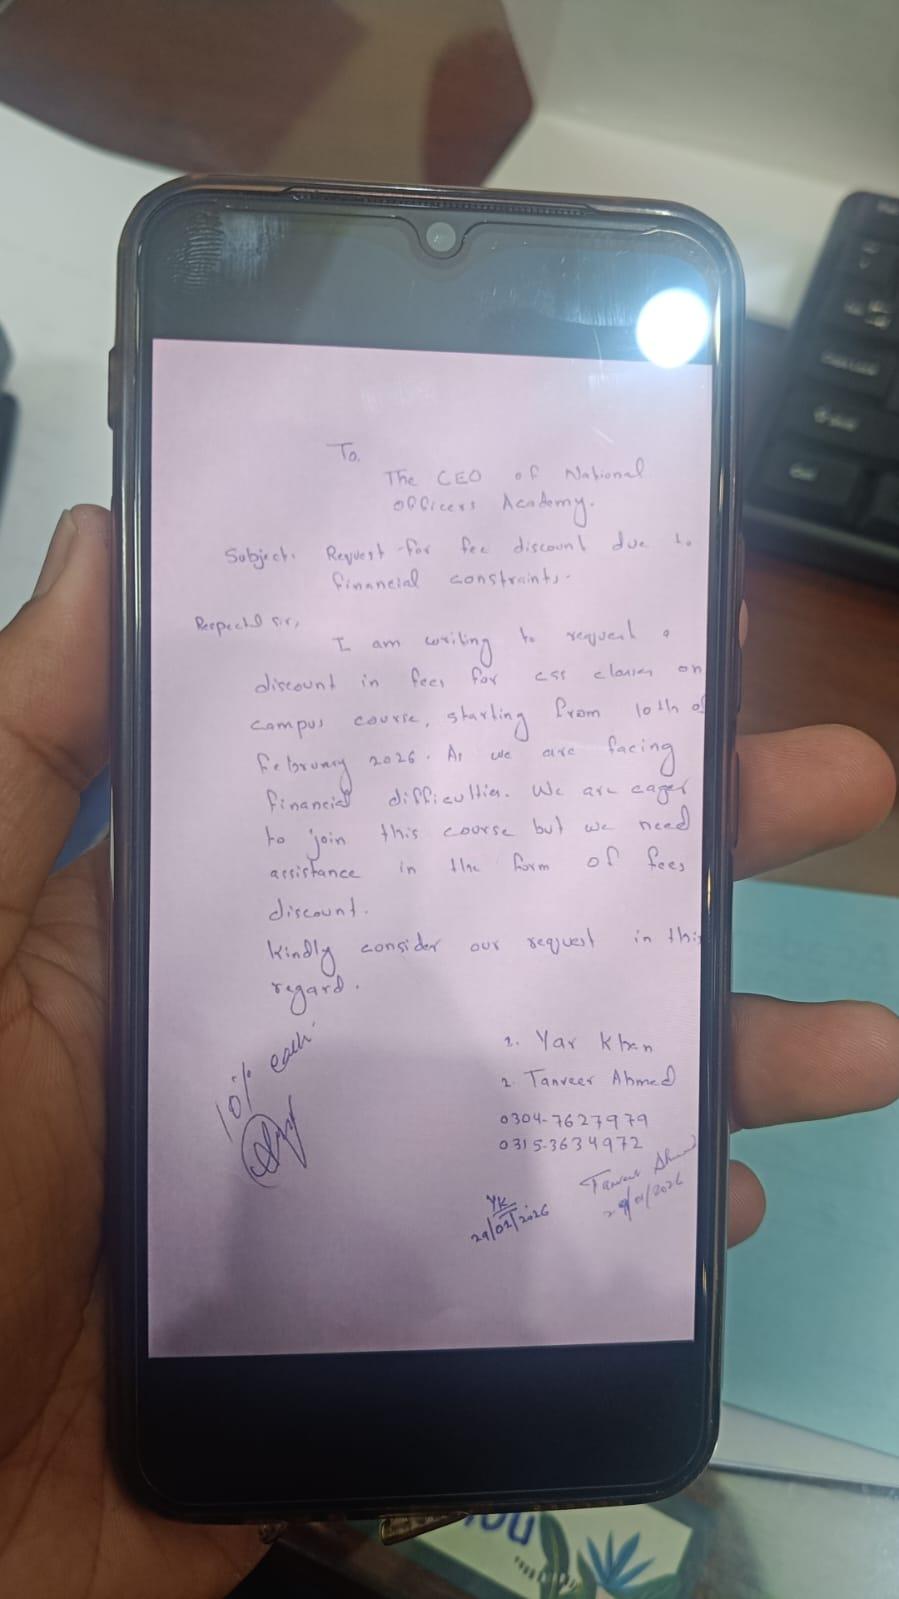 To,
The CEO of National
Officers Academy.
Subject: Request for fee discount due to
financial constraints.
Respected Sir,
I am writing to request a
discount in fees for css classes on
campus course, starting from 10th of
February 2026. As we are facing
financial difficulties. We are eager
to join this course but we need
assistance in the form of fees
discount.
Kindly consider our request in this
regard.
10% each
1. Yar Khan
2. Tanveer Ahmed
0304-7627979
0315-3634972
YK
Tanveer Ahmed
29/01/2026
29/01/2026
you